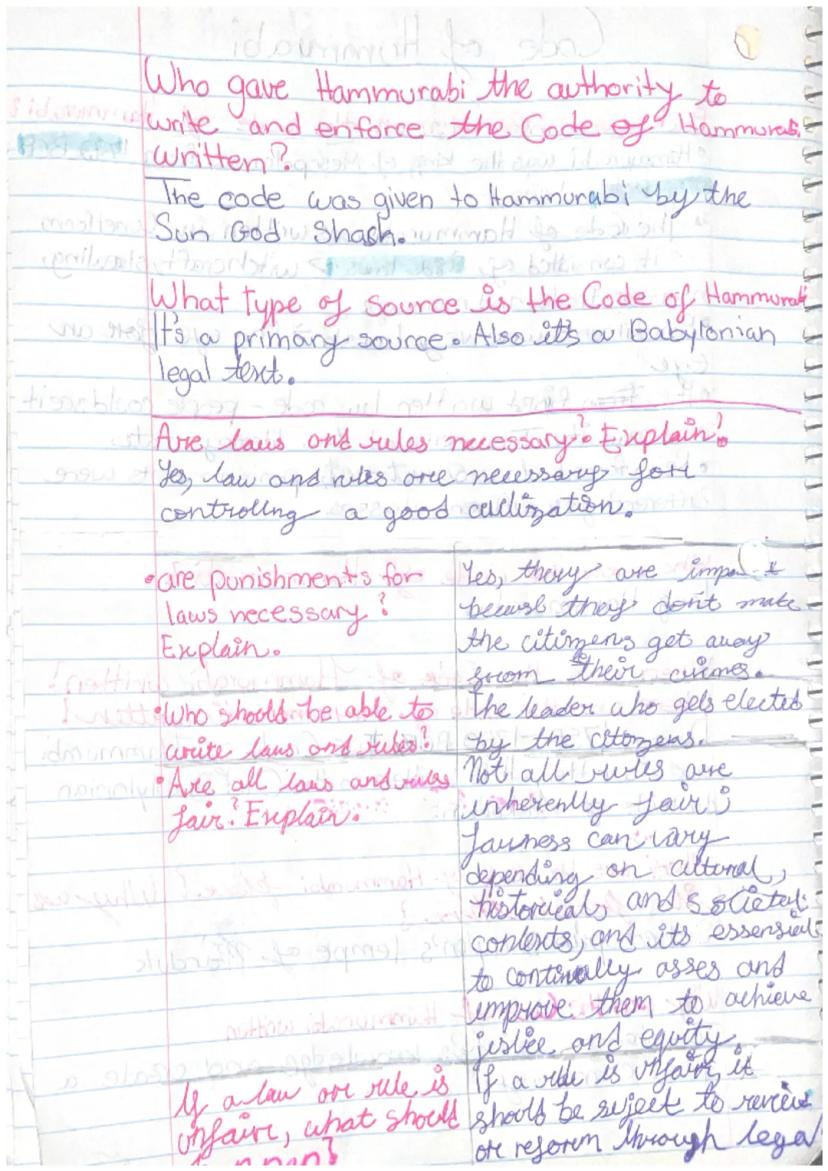 Who gave Hammurabi the authority to
write and enforce the Code of Hammurabi
written?
The code was given to Hammurabi by the
Sun God Shash.
What type of source is the Code of Hammurabi
It's a primary source. Also it's a Babylonian
legal text.
Are laws and rules necessary? Explain!
Yes, law and rules are necessary for
controlling a good civilization.
•are punishments for
laws necessary?
Explain.
Yes, they are
because they don't make
the citizens get away
from their crimes.
•Who should be able to
write laws and rules?
The leader who gets elected
by the citizens.
•Are all laws and rules
fair? Explain.
Not all rules are
inherently fair;
fairness can vary
depending on cultural,
historical, and societal
contexts, and its essential
to continually asses and
improve them to achieve
justice and equity.
If a law or rule is
unfair, what should
If a rule is unfair, it
should be suject to review
or reform through legal